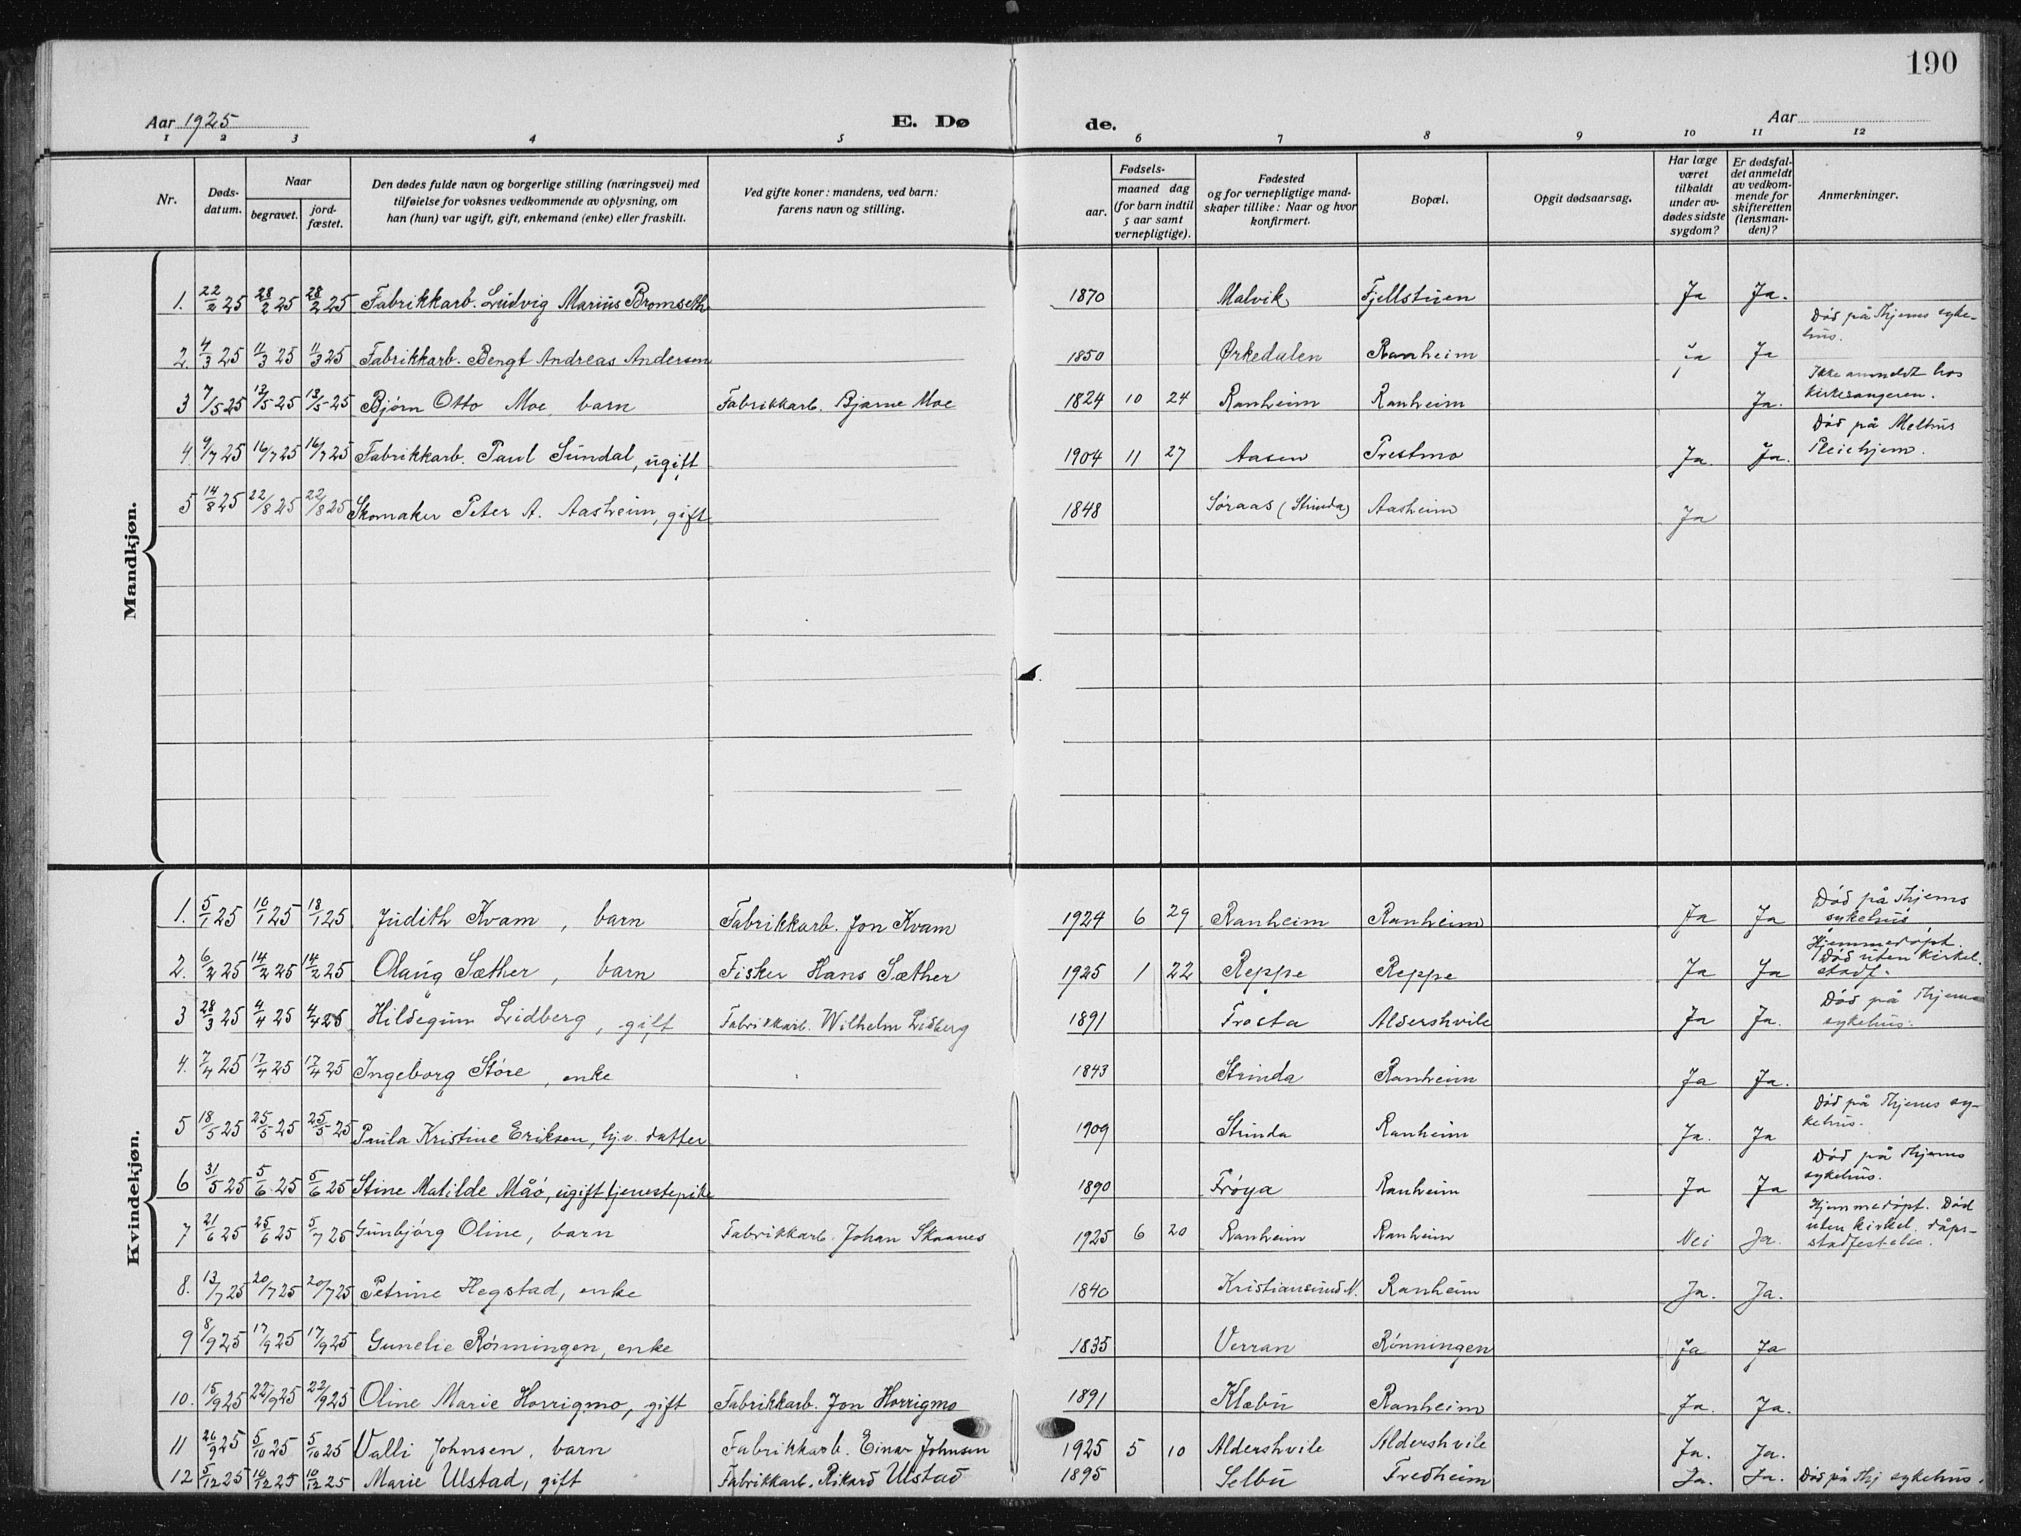 190
Aar 1925 E. Dø de. Aar
1 2 3 4 5 6 7 8 9 10 11 12
Nr.
Døds-
datum.
Naar
begravet.
jord-
fæstet.
Den dødes fulde navn og borgerlige stilling (næringsvei) med
tilføielse for voksnes vedkommende av oplysning, om
han (hun) var ugift, gift, enkemand (enke) eller fraskilt.
Ved gifte koner: mandens, ved barn:
farens navn og stilling.
Fødsels-
aar.
maaned dag
(for barn indtil
5 aar samt
vernepligtige).
Fødested
og for vernepligtige mand-
skaper tillike: Naar og hvor
konfirmert.
Bopæl.
Opgit dødsaarsag.
Har læge
været
tilkaldt
under av-
dødes sidste
sygdom?
Er dødsfal-
det anmeldt
av vedkom-
mende for
skifteretten
(lensman-
den)?
Anmerkninger.
Mandkjøn.
1. 22/2 25 28/2 25 28/2 25 Fabrikkarb. Ludvig Marius Bromseth 1870 Malvik Fjellstuen Ja Ja.
2. 4/3 25 11/3 25 11/3 25 Fabrikkarb. Bengt Andreas Andersen 1850 Ørkedalen Ranheim Ja Ja Død på Thjems syke-
hus.
3 7/5 25 13/5 25 13/5 25 Bjørn Otto Moe, barn Fabrikkarb. Bjarne Moe 1824 10 24 Ranheim Ranheim Ja. Ikke anmeldt hos
kirkesangeren.
4 9/7 25 16/7 25 16/7 25 Fabrikkarb. Paul Sundal, ugift 1904 11 27 Aasen Prestmo Ja. Ja. Død på Melhus
Pleiehjem.
5 14/8 25 22/8 25 22/8 25 Skomaker Peter A. Aasheim, gift 1848 Søraas (Strinda) Aasheim Ja
Kvindekjøn.
1. 5/1 25 10/1 25 18/1 25 Judith Kvam, barn Fabrikkarb. Jon Kvam 1924 6 29 Ranheim Ranheim Ja Ja Død på Thjems
sykehus
2. 6/2 25 14/2 25 14/2 25 Olaug Sæther, barn Fisker Hans Sæther 1925 1 22 Reppe Reppe Ja Ja Hjemmedøpt.
Død uten kirkel.
stadf.
3 28/3 25 4/4 25 4/4 25 Hildegun Lidberg, gift Fabrikkarb. Wilhelm Lidberg 1891 Frosta Aldershvile Ja Ja. Død på Thjems
sykehus.
4. 7/4 25 17/4 25 17/4 25 Ingeborg Støre, enke 1843 Strinda Ranheim Ja Ja.
5 18/5 25 25/5 25 25/5 25 Paula Kristine Eriksen, hj.v. datter 1909 Strinda Ranheim Ja. Ja Død på Thjems sy-
kehus.
6 31/5 25 5/6 25 5/6 25 Stine Matilde Måø, ugift tjenestepike 1890 Frøya Ranheim Ja Ja Død på Thjems
sykehus.
7 21/6 25 25/6 25 5/7 25 Gunbjørg Oline, barn Fabrikkarb. Johan Skaanes 1925 6 20 Ranheim Ranheim Nei Ja. Hjemmedøpt. Død
uten kirkel. dåps-
stadfestelse.
8. 13/7 25 20/7 25 20/7 25 Petrine Hegstad, enke 1840 Kristiansund N. Ranheim Ja. Ja.
9 8/9 25 17/9 25 17/9 25 Gunelie Rønningen, enke 1835 Verran Rønningen Ja Ja
10. 15/9 25 22/9 25 22/9 25 Oline Marie Horrigmo, gift Fabrikkarb. Jon Horrigmo 1891 Klæbu Ranheim Ja. Ja.
11 26/9 25 5/10 25 5/10 25 Valli Johnsen, barn Fabrikkarb. Einar Johnsen 1925 5 10 Aldershvile Aldershvile Ja. Ja.
12 5/12 25 10/12 25 10/12 25 Marie Ulstad, gift Fabrikkarb. Rikard Ulstad 1895 Selbu Fredheim Ja. Ja. Død på Thj sykehus.